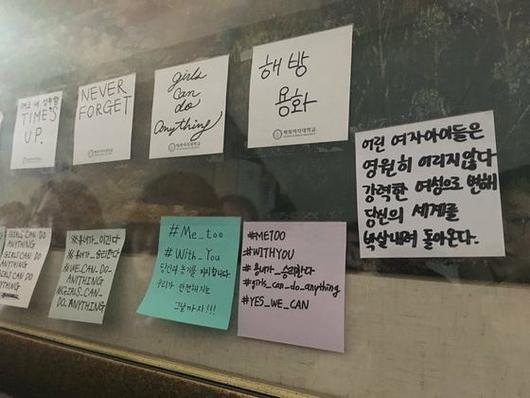 TIME'S
UP.
NEVER
FORGET
girls
can
do
Anything
해방
용화
어린 여자아이들은
영원히 어리지 않다
강력한 여성으로 변해
당신의 세계를
박살내러 돌아온다.
GIRLS CAN DO
ANYTHING
GIRLS CAN DO
ANYTHING
GIRLS CAN DO
ANYTHING
#우리가_이긴다
#우리가_승리한다
#WE_CAN_DO_
ANYTHING
#GIRLS_CAN_
DO_ANYTHING
#Me_too
#With_You
당신의 용기를 지지합니다
우리가 안전해지는
그날까지!!!
#METOO
#WITHYOU
#우리가_승리한다
#girls_can_do_anything
#YES_WE_CAN